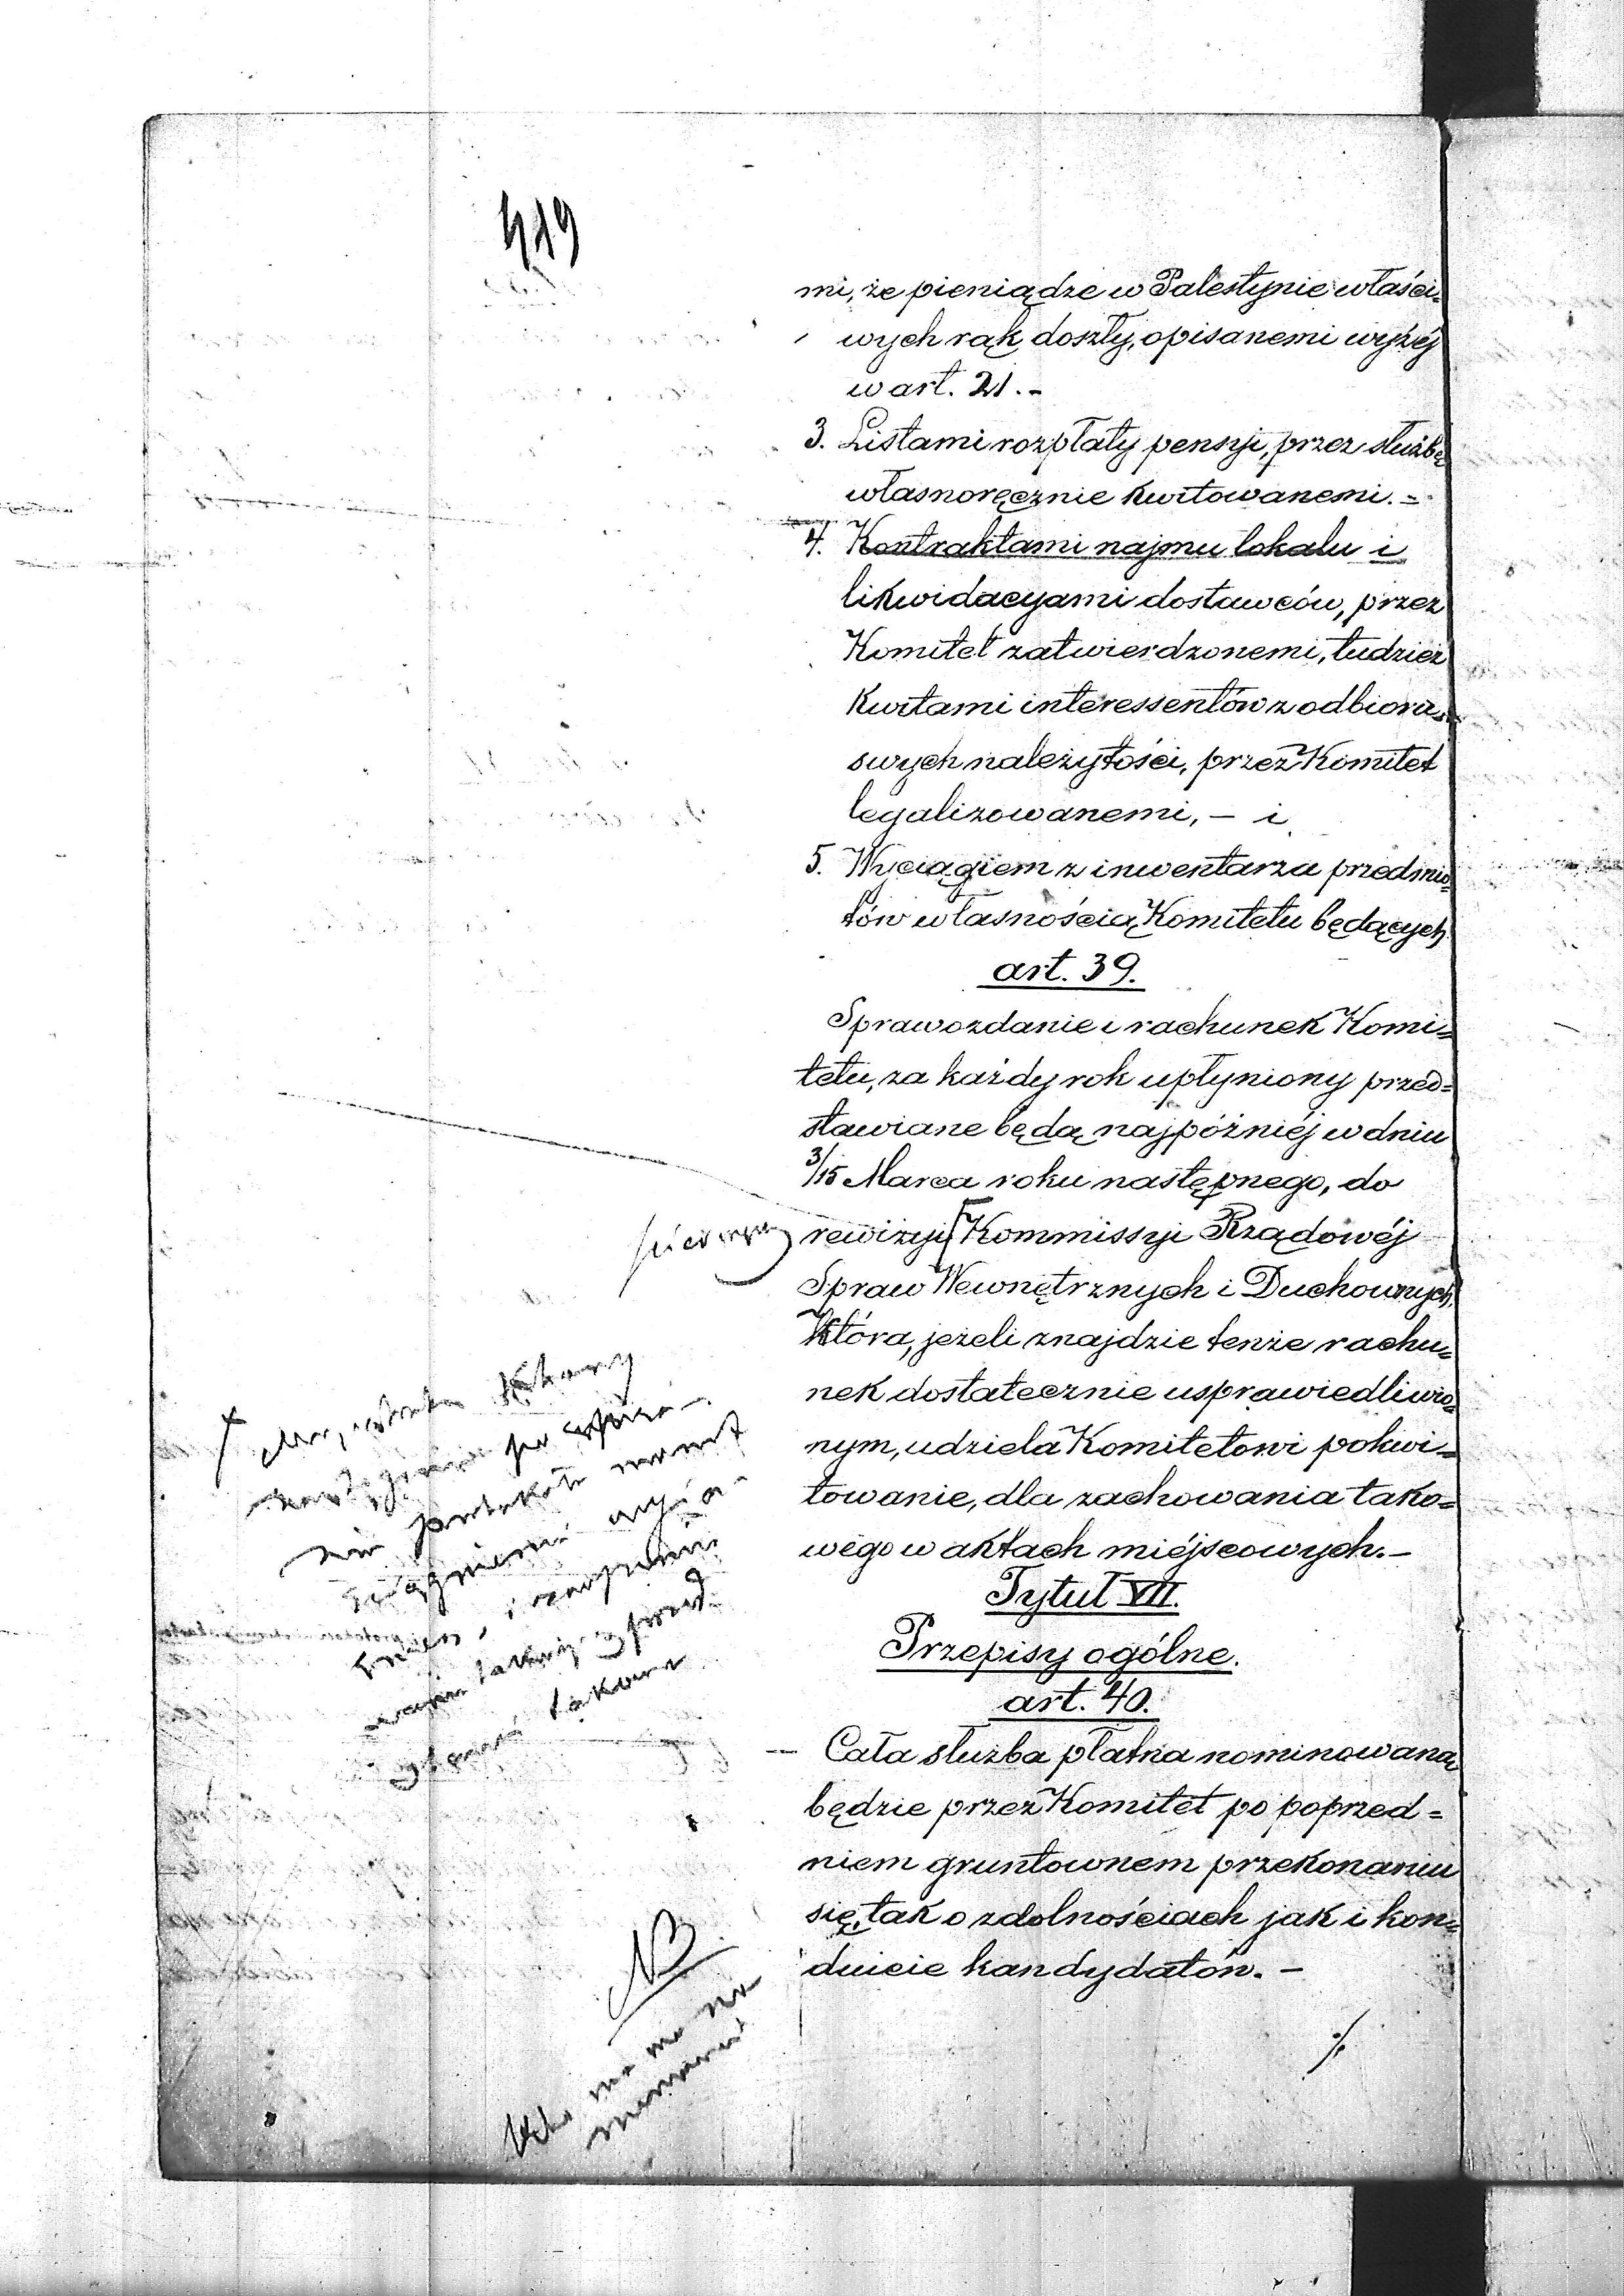 419
mi, że pieniądze w Palestynie właści=
wych rąk doszły, opisanemi wyżéj
w art. 21.-
3. Listami rozpłaty pensyi, przez służbę
własnoręcznie kwitowanemi.=
4. Kontraktami najmu lokalu i
likwidacyami dostawców, przez
Komitet zatwierdzonemi, tudzież
Kwitami interessentów z odbioru
swych należytości, przez Komitet
legalizowanemi, - i
5. Wyciągiem z inwentarza przedmio=
tów własnością Komitetu będących
art. 39.
Sprawozdanie i rachunek Komi=
tetu, za każdy rok upłyniony przed=
stawiane będą najpóźniéj w dniu
3/15 Marca roku następnego, do
rewizyi Kommissyi Rządowéj
Spraw Wewnętrznych i Duchownych,
Która, jeżeli znajdzie tenże rachu=
nek dostatecznie usprawiedliwio=
nym, udziela Komitetowi pokwi=
towanie, dla zachowania tako=
wego w aktach miéjscowych.-
Tytuł VII.
Przepisy ogólne.
art. 40.
- Cała służba płatna nominowaną
będzie przez Komitet po poprzed=
niem gruntownem przekonaniu
się, tak o zdolnościach jak i kon=
duicie kandydatów. -
NB